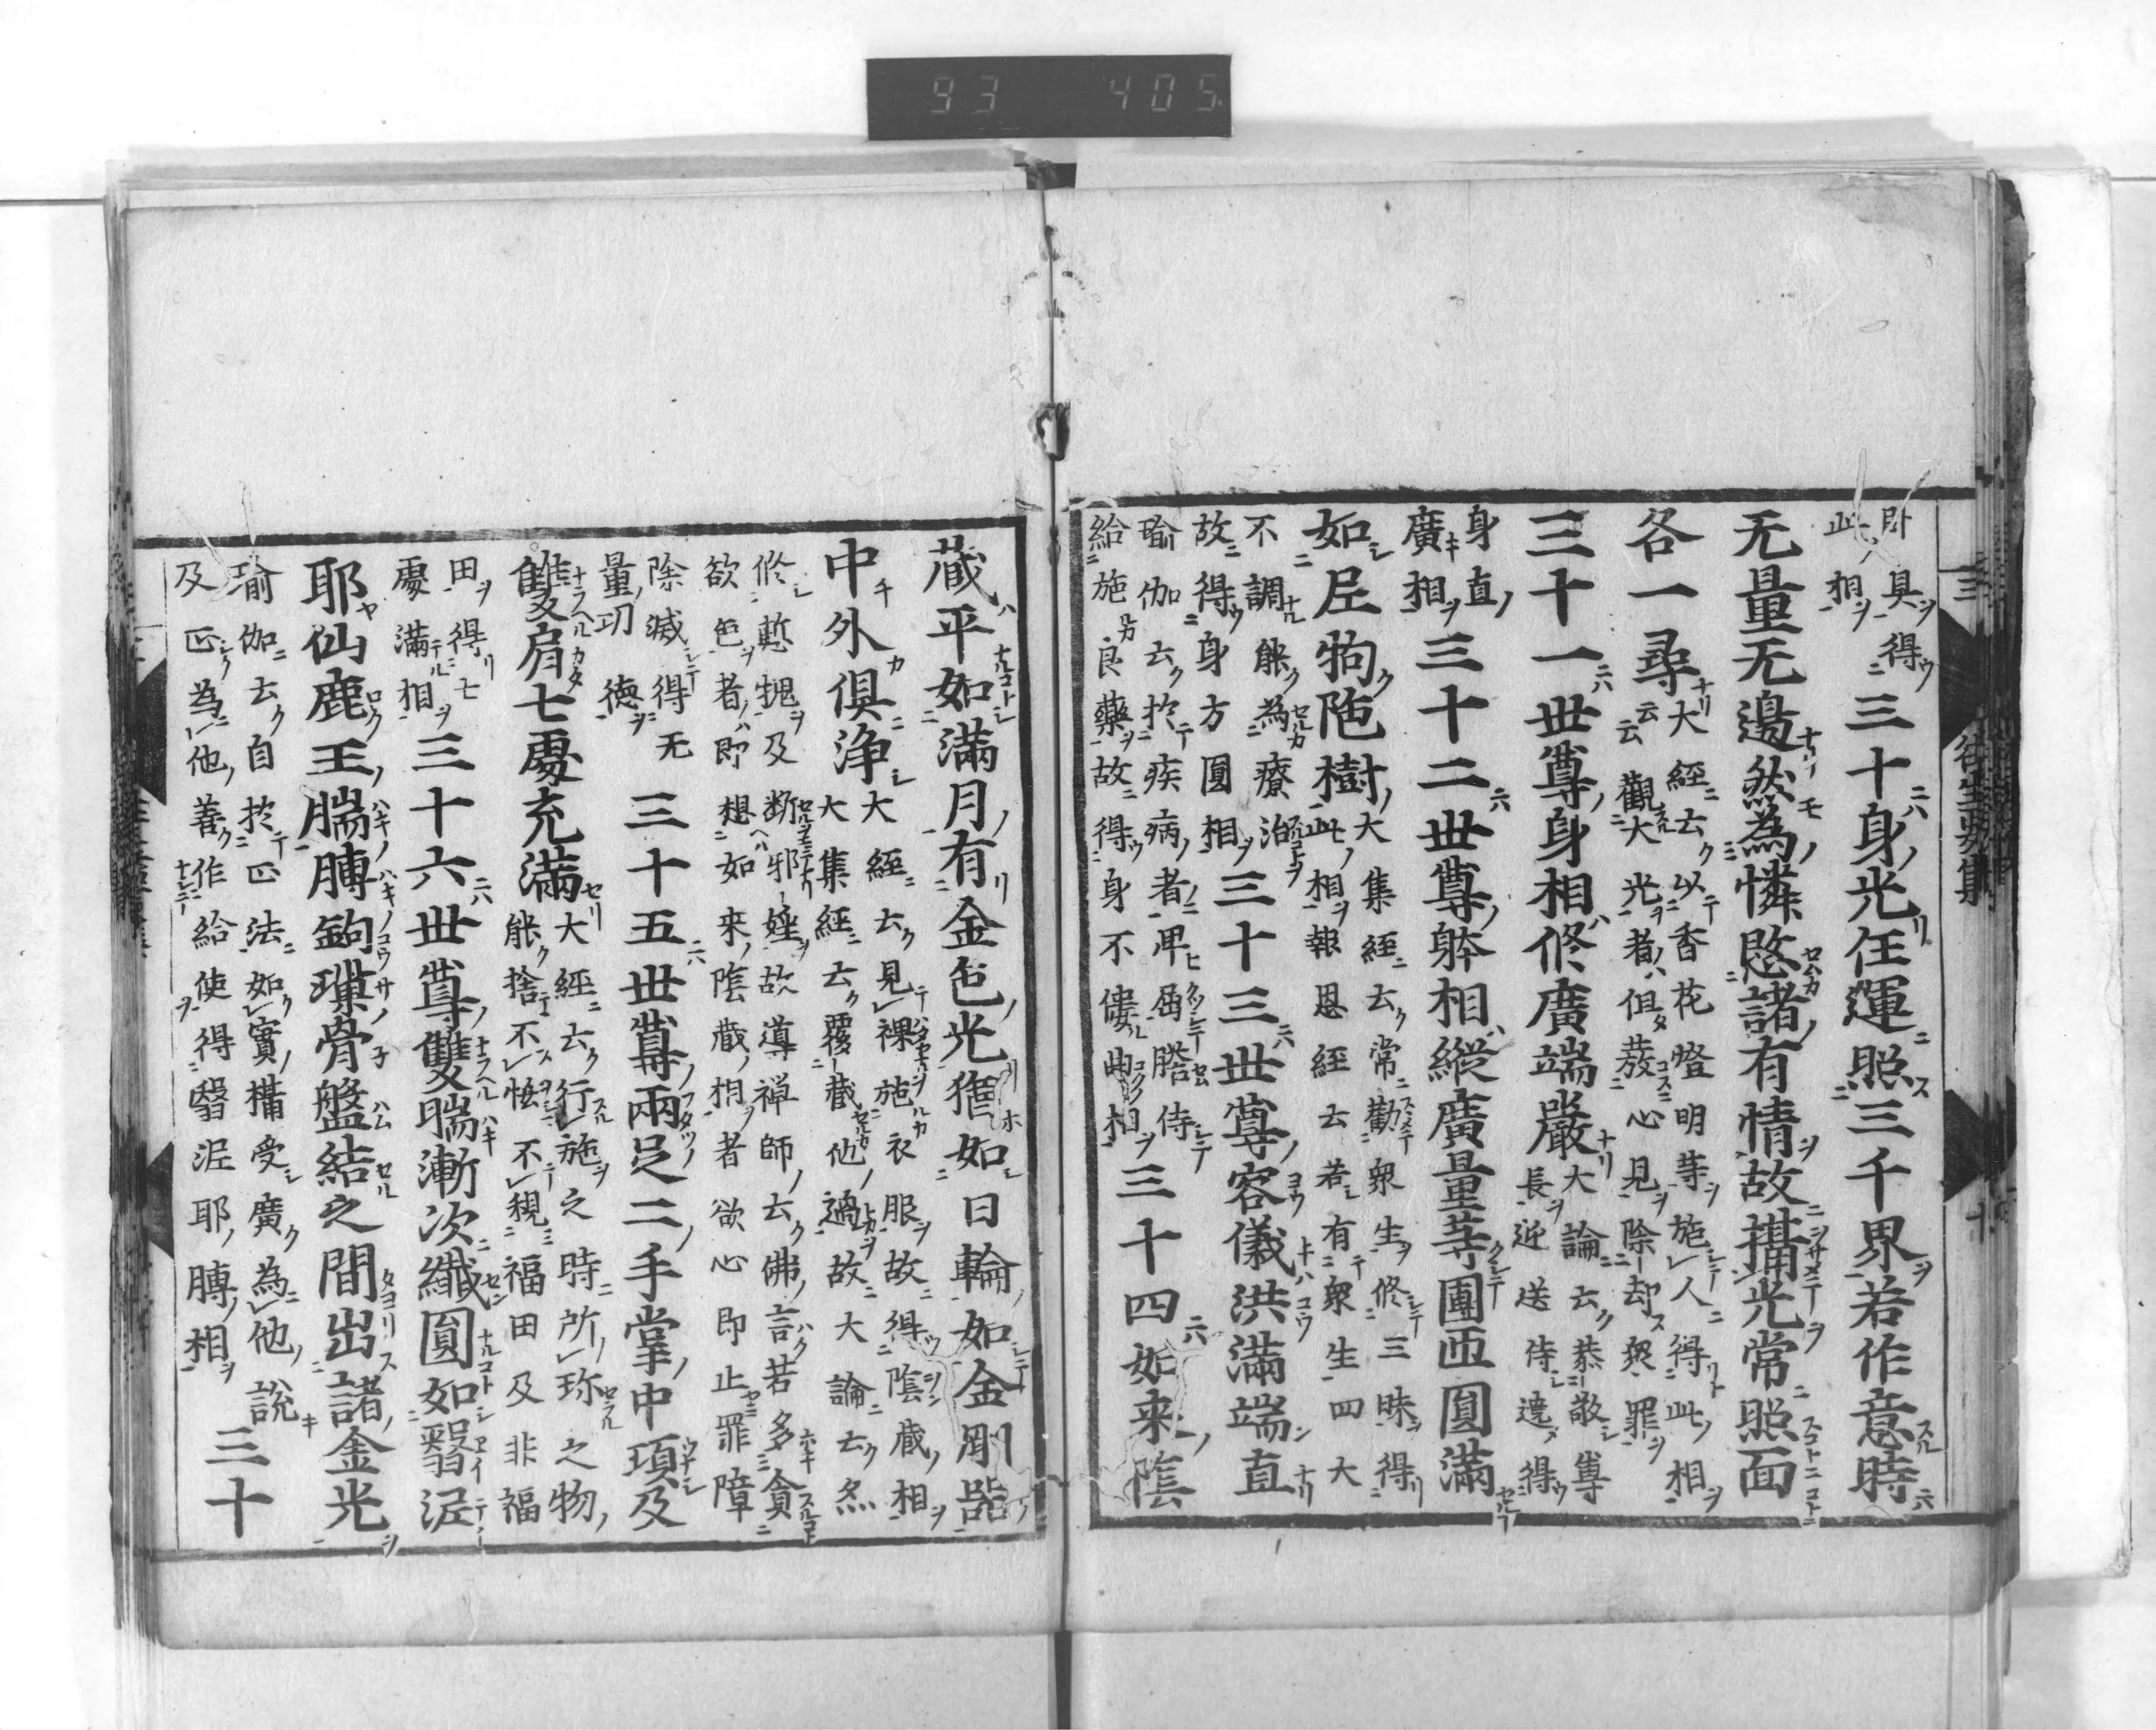 93 405
往生要集
卧具得
此相
三十身光任運照三千界若作意時
无量无邊然為憐愍諸有情故攝光常照面
各一尋
大經云以香花燈明等施人得此相
云云觀大光者但發心見除却衆罪
三十一世尊身相修廣端嚴
大論云恭敬尊
長近送侍遶得
身直
廣相
三十二世尊躰相縱廣量等團迊圓滿
如尼拘陁樹
大集經云常勸衆生修三昧得
此相報恩經云若有衆生四大
不調能為療治
故得身方圓相
三十三世尊容儀洪滿端直
瑜伽云於疾病者卑屈瞻侍
給施良藥故得身不僂曲相
三十四如來陰
藏平如滿月有金色光猶如日輪如金剛器
中外俱淨
大經云見裸施衣服故得陰藏相
大集經云覆藏他過故大論云多
修慙愧及断邪婬故導禅師云佛言若多貪
欲色者即想如來陰藏相者欲心即止罪障
除滅得无
量㓛德
三十五世尊兩足二手掌中項及
雙肩七處充滿
大經云行施之時所珍之物
能捨不悋不親福田及非福
田得七
處滿相
三十六世尊雙腨漸次纖圓如翳泥
耶仙鹿王腨膊鉤璅骨盤結之間出諸金光
瑜伽云自於正法如實攝受廣為他說
及正為他善作給使得翳泥耶膊相
三十